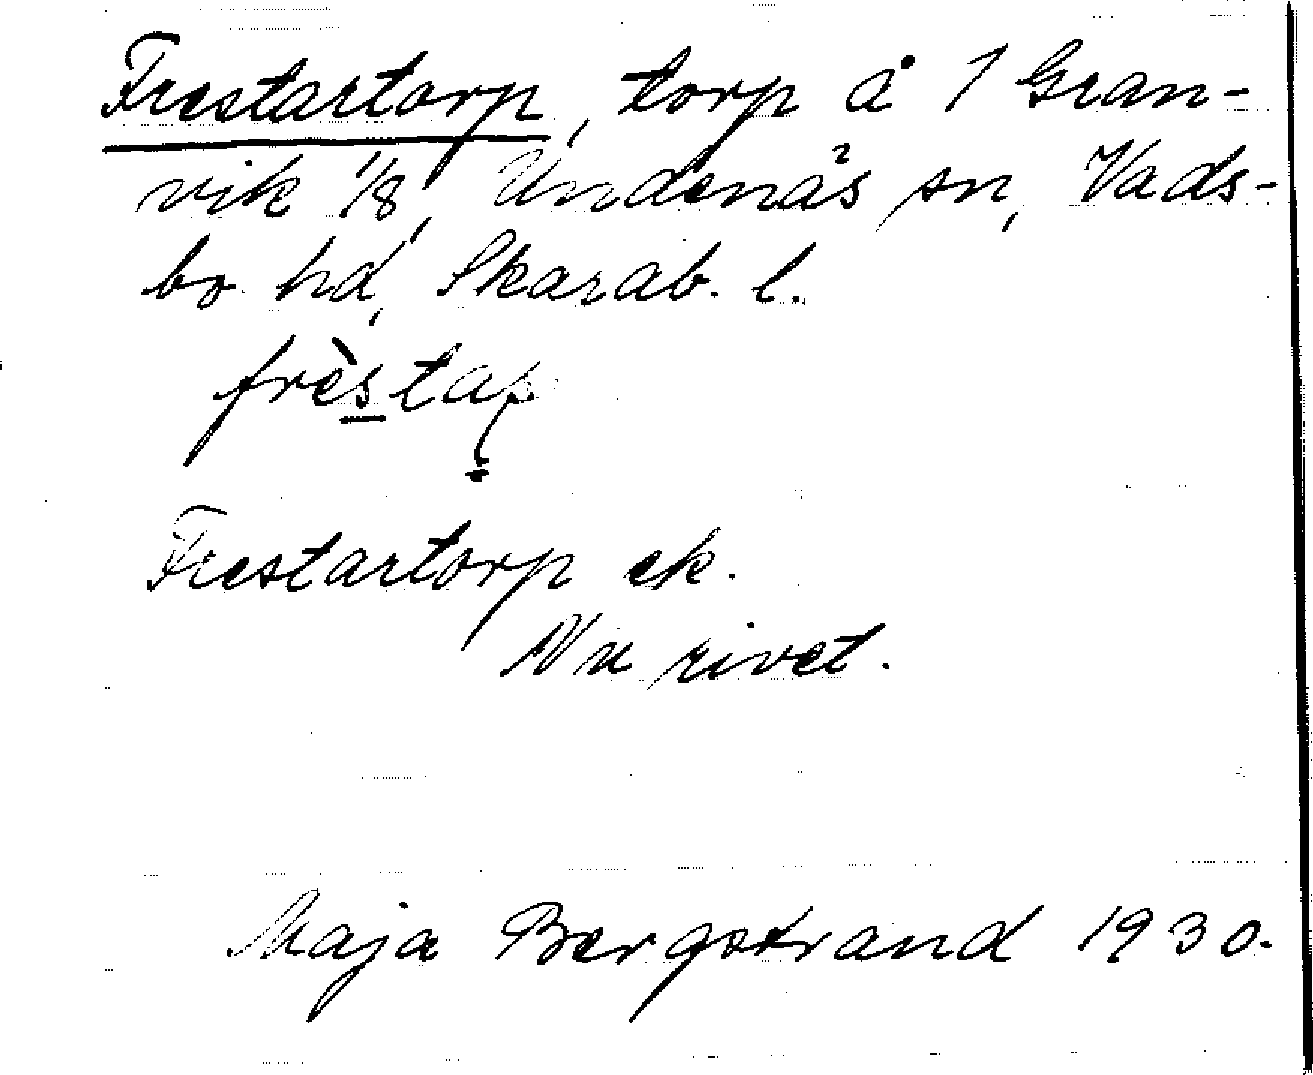 Frestartorp, torp å 1 Gran-
vik 1/8, Undenäs sn, Vads-
bo hd, Skarab. l.
frèstap
Frestartorp ek.
Nu rivet.
Maja Bergstrand 1930.